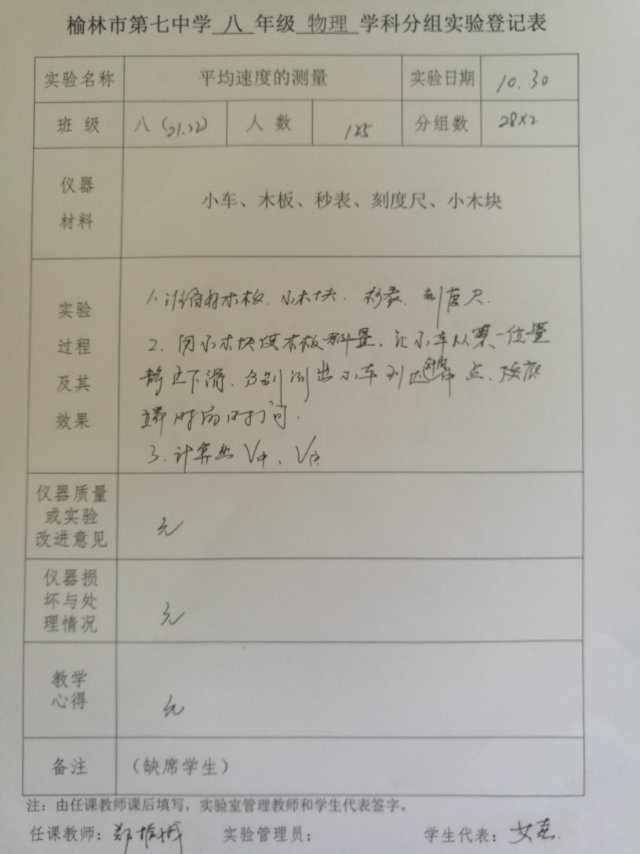 榆林市第七中学 八 年级 物理 学科分组实验登记表
实验名称 平均速度的测量 实验日期 10.30
班 级 八(21.22) 人 数 125 分组数 28×2
仪器
材料
小车、木板、秒表、刻度尺、小木块
实验
过程
及其
效果
1. 准备好木板、小木块、秒表、刻度尺.
2. 用小木块使木板倾斜放置, 让小车从某一位置
静止下滑, 分别测出小车到达 中点、
端时的时间.
3. 计算出 V中, V
仪器质量
或实验
改进意见
无
仪器损
坏与处
理情况
无
教学
心得
无
备注 (缺席学生)
注:由任课教师课后填写,实验室管理教师和学生代表签字。
任课教师: 实验管理员: 学生代表: